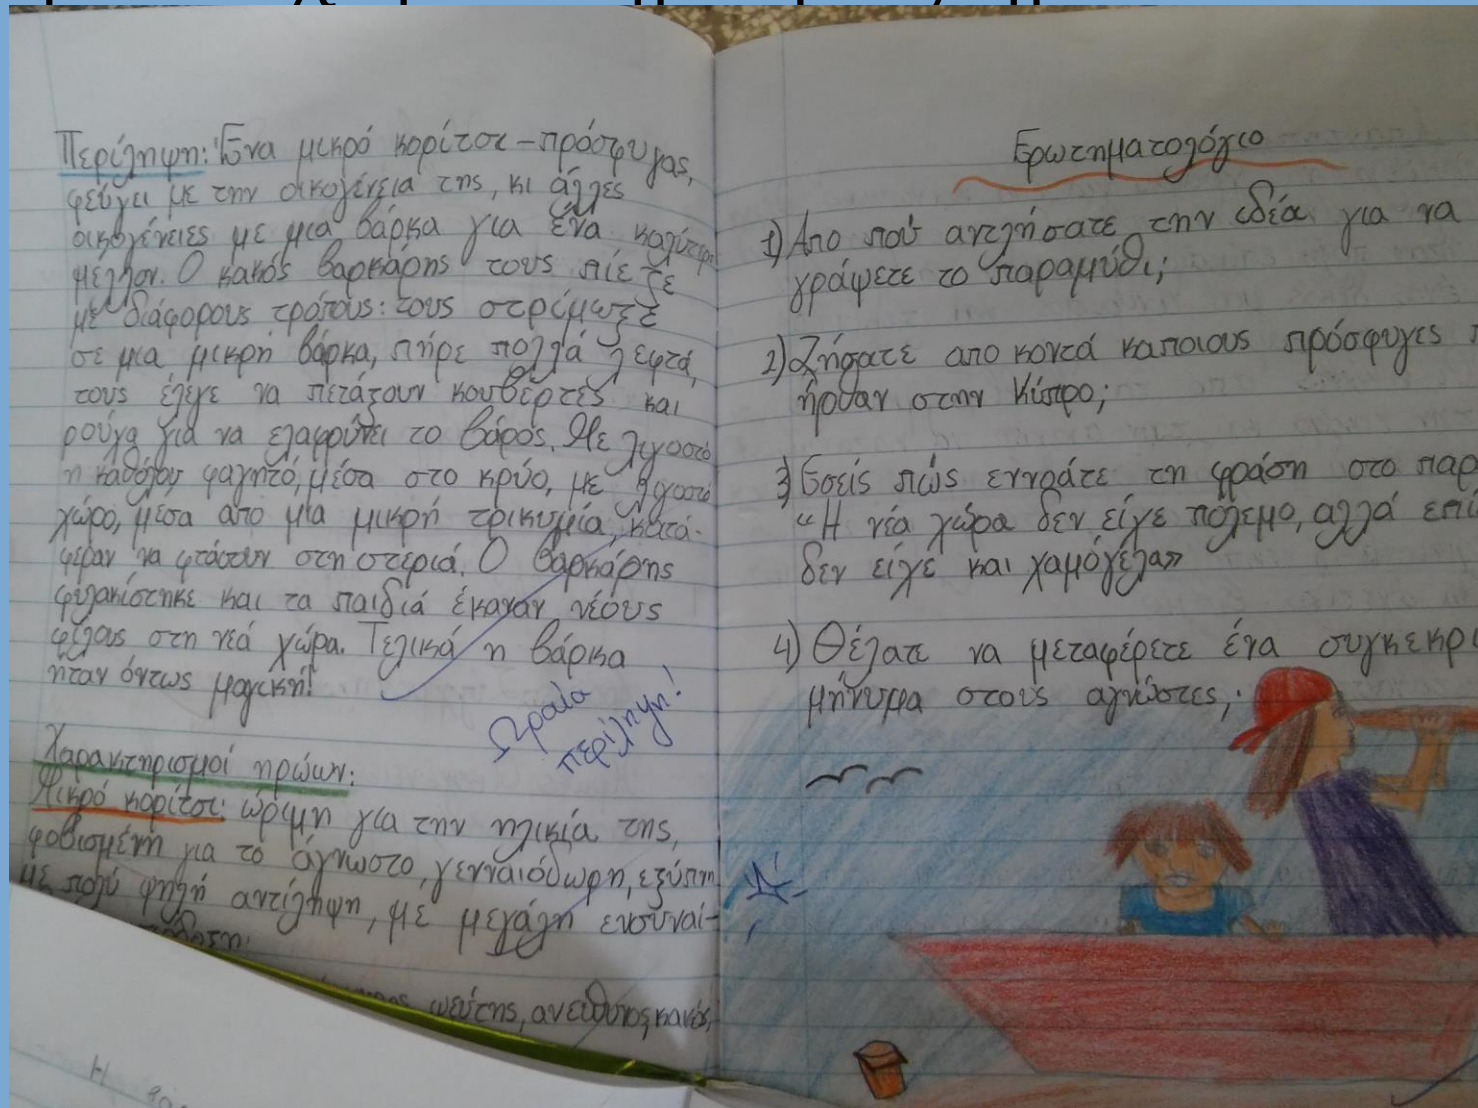 Περίληψη: Ένα μικρό κορίτσι - πρόσφυγας,
φεύγει με την οικογένεια της, κι άλλες
οικογένειες με μια βάρκα για ένα καλύτερο
μέλλον. Ο κακός βαρκάρης τους πίεζε
με διάφορους τρόπους: τους στρίμωξε
σε μια μικρή βάρκα, πήρε πολλά λεφτά,
τους έλεγε να πετάξουν κουβέρτες και
ρούχα για να ελαφρύνει το βάρος. Με λιγοστό
η καθόλου φαγητό, μέσα στο κρύο, με λιγοστό
χώρο, μέσα από μια μικρή τρικυμία, κατά-
φεραν να φτάσουν στη στεριά. Ο βαρκάρης
φυλακίστηκε και τα παιδιά έκαναν νέους
φίλους στη νέα χώρα. Τελικά η βάρκα
ήταν όντως μαγική!
Ωραία
περίληψη!
Χαρακτηρισμοί ηρώων:
Μικρό κορίτσι: ώριμη για την ηλικία της,
φοβισμένη για το άγνωστο, γενναιόδωρη, έξυπνη
με πολύ ψηλή αντίληψη, με μεγάλη ενσυναί-
ψεύτης, ανεύθυνος, κακός,
Η
Ερωτηματολόγιο
1) Απο πού αντλήσατε την ιδέα για να
γράψετε το παραμύθι;
2) Ζήσατε απο κοντά καποιους πρόσφυγες
ήρθαν στην Κύπρο;
3) Εσείς πώς εννοάτε τη φράση στο παρ
"Η νέα χώρα δεν είχε πόλεμο, αλλά επί
δεν είχε και χαμόγελα"
4) Θέλατε να μεταφέρετε ένα συγκεκρι
μήνυμα στους αγνώστες;